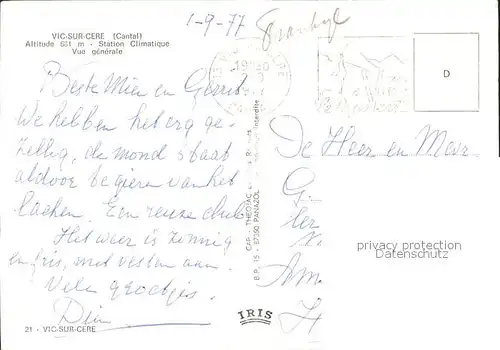 1-9-77
Frankrijk
VIC-SUR-CERE (Cantal)
Altitude 681 m - Station Climatique
Vue générale
Beste Mien en Gerrit.
We hebben het erg ge-
zellig, de mond staat
aldoor te gieren van het
lachen. Een reuze club
Het weer is zonnig
en fris, met vesten aan.
Vele groetjes.
Dini
21 - VIC-SUR-CERE
CAP - THEOJAC
B.P. 15 - 87350 PANAZOL
interdite
IRIS
D
De Heer en Mevr
G
ler
Am
H
privacy protection
Datenschutz